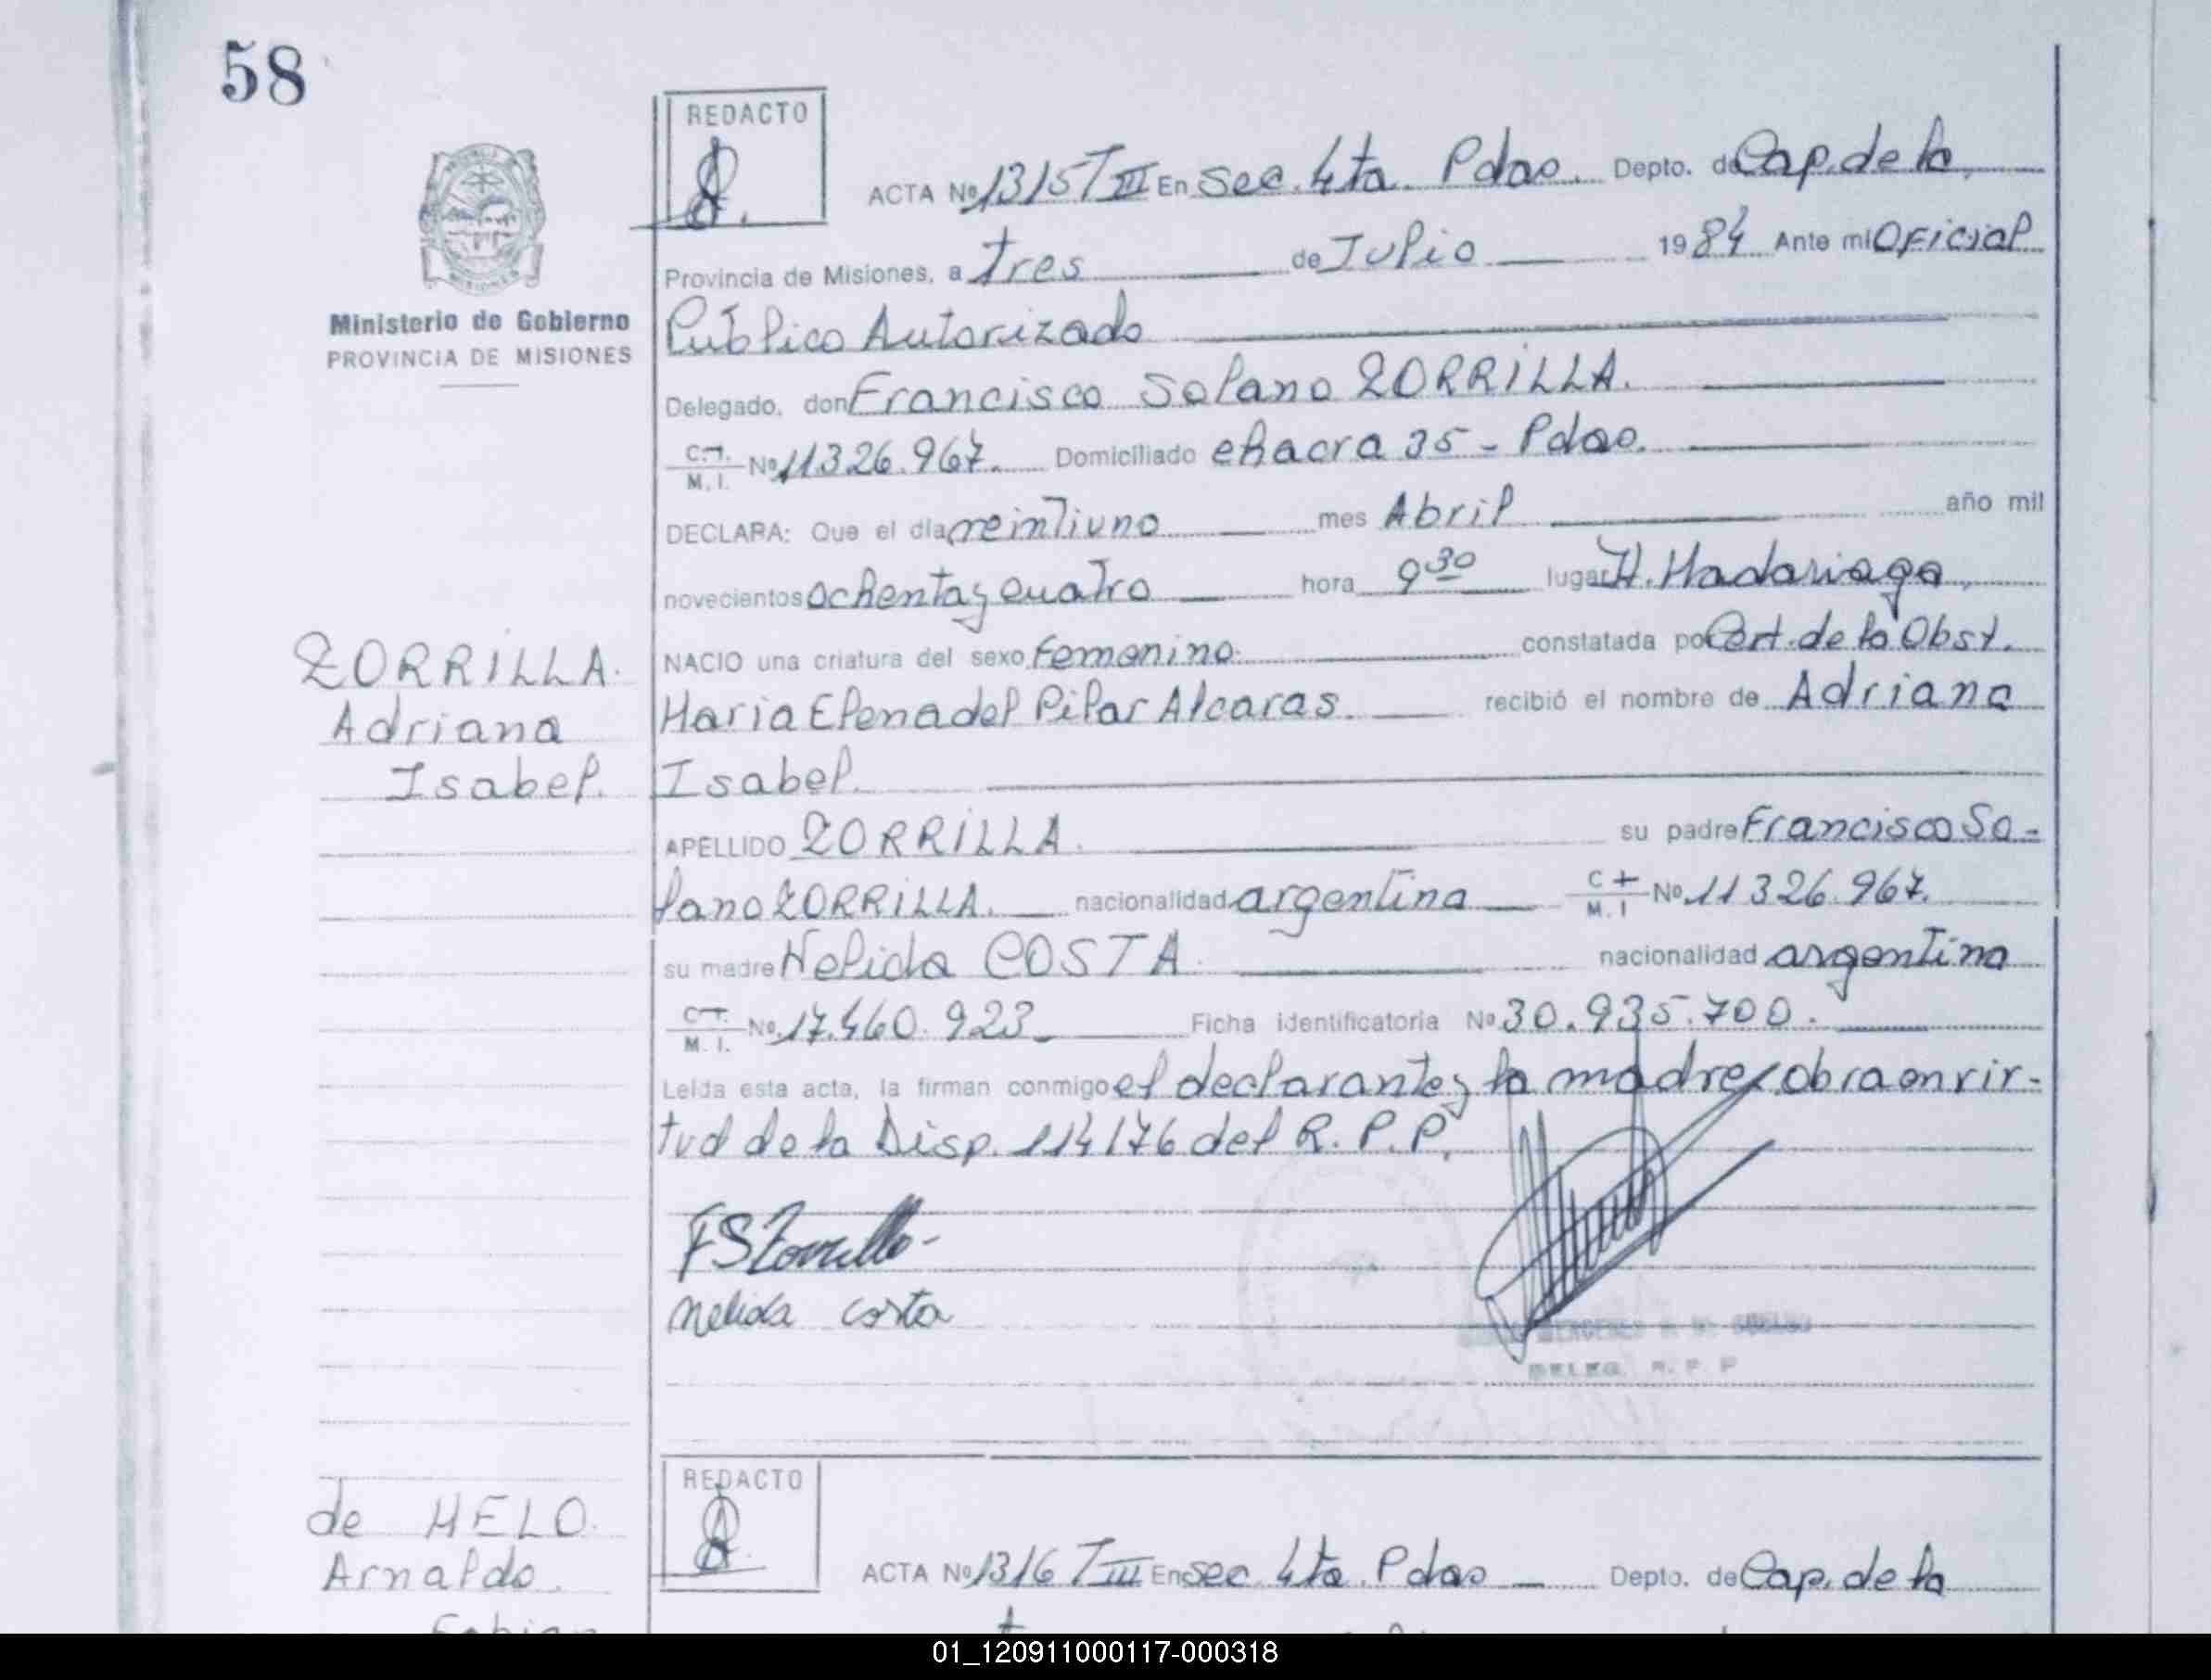 58
REDACTO
ACTA Nº 1315 T III En Sec. 4ta. Pdas. Depto. de Cap. de la
Provincia de Misiones, a tres de Julio 1984 Ante mi Oficial
Ministerio de Gobierno
PROVINCIA DE MISIONES
Público Autorizado
Delegado, don Francisco Solano ZORRILLA.
C.I.
M. I. Nº 11.326.967. Domiciliado chacra 35 - Pdas.
DECLARA: Que el día veintiuno mes Abril año mil
novecientos ochenta y cuatro hora 9 30 lugar H. Madariaga,
NACIO una criatura del sexo femenino constatada por Cert. de la Obst.
ZORRILLA.
Adriana
Isabel.
Maria Elena del Pilar Alcaras. recibió el nombre de Adriana
Isabel.
APELLIDO ZORRILLA. su padre Francisco So-
lano ZORRILLA. nacionalidad argentina C I
M. I Nº 11326.967.
su madre Nelida COSTA. nacionalidad argentina
C.I.
M. I. Nº 17.460.923 Ficha identificatoria Nº 30.935.700.
Leída esta acta, la firman conmigo el declarante y la madre, obra en vir-
tud de la Disp. 114/76 del R. P. P.
FSZorrilla-
nelida costa
DELEG. R. P. P
REDACTO
de MELO.
Arnaldo.
Fabian
ACTA Nº 1316 T III En Sec. 4ta. Pdas Depto. de Cap. de la
01_120911000117-000318